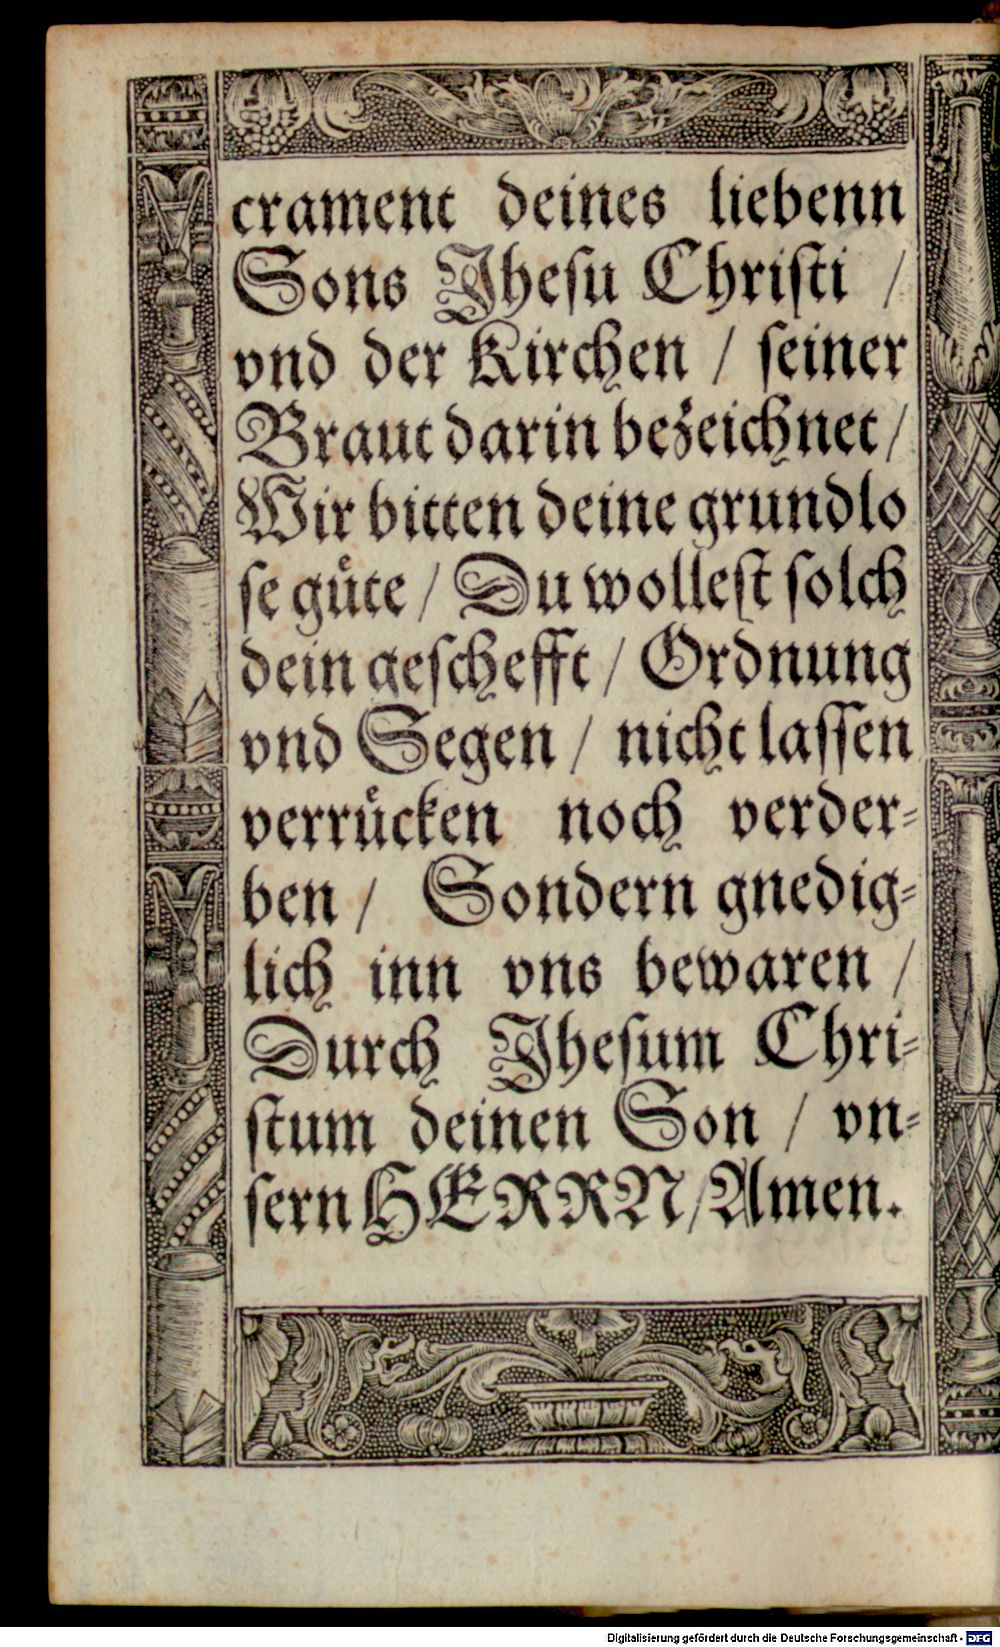 crament deines liebenn
Sons Jhesu Christi /
vnd der Kirchen / seiner
Braut darin bezeichnet /
Wir bitten deine grundlo
se guͤte / Du wollest solch
dein geschefft / Ordnung
vnd Segen / nicht lassen
verruͤcken noch verder-
ben / Sondern gnedig-
lich inn vns bewaren /
Durch Jhesum Chri-
stum deinen Son / vn-
sern HERRN / Amen.
Digitalisierung gefördert durch die Deutsche Forschungsgemeinschaft - DFG